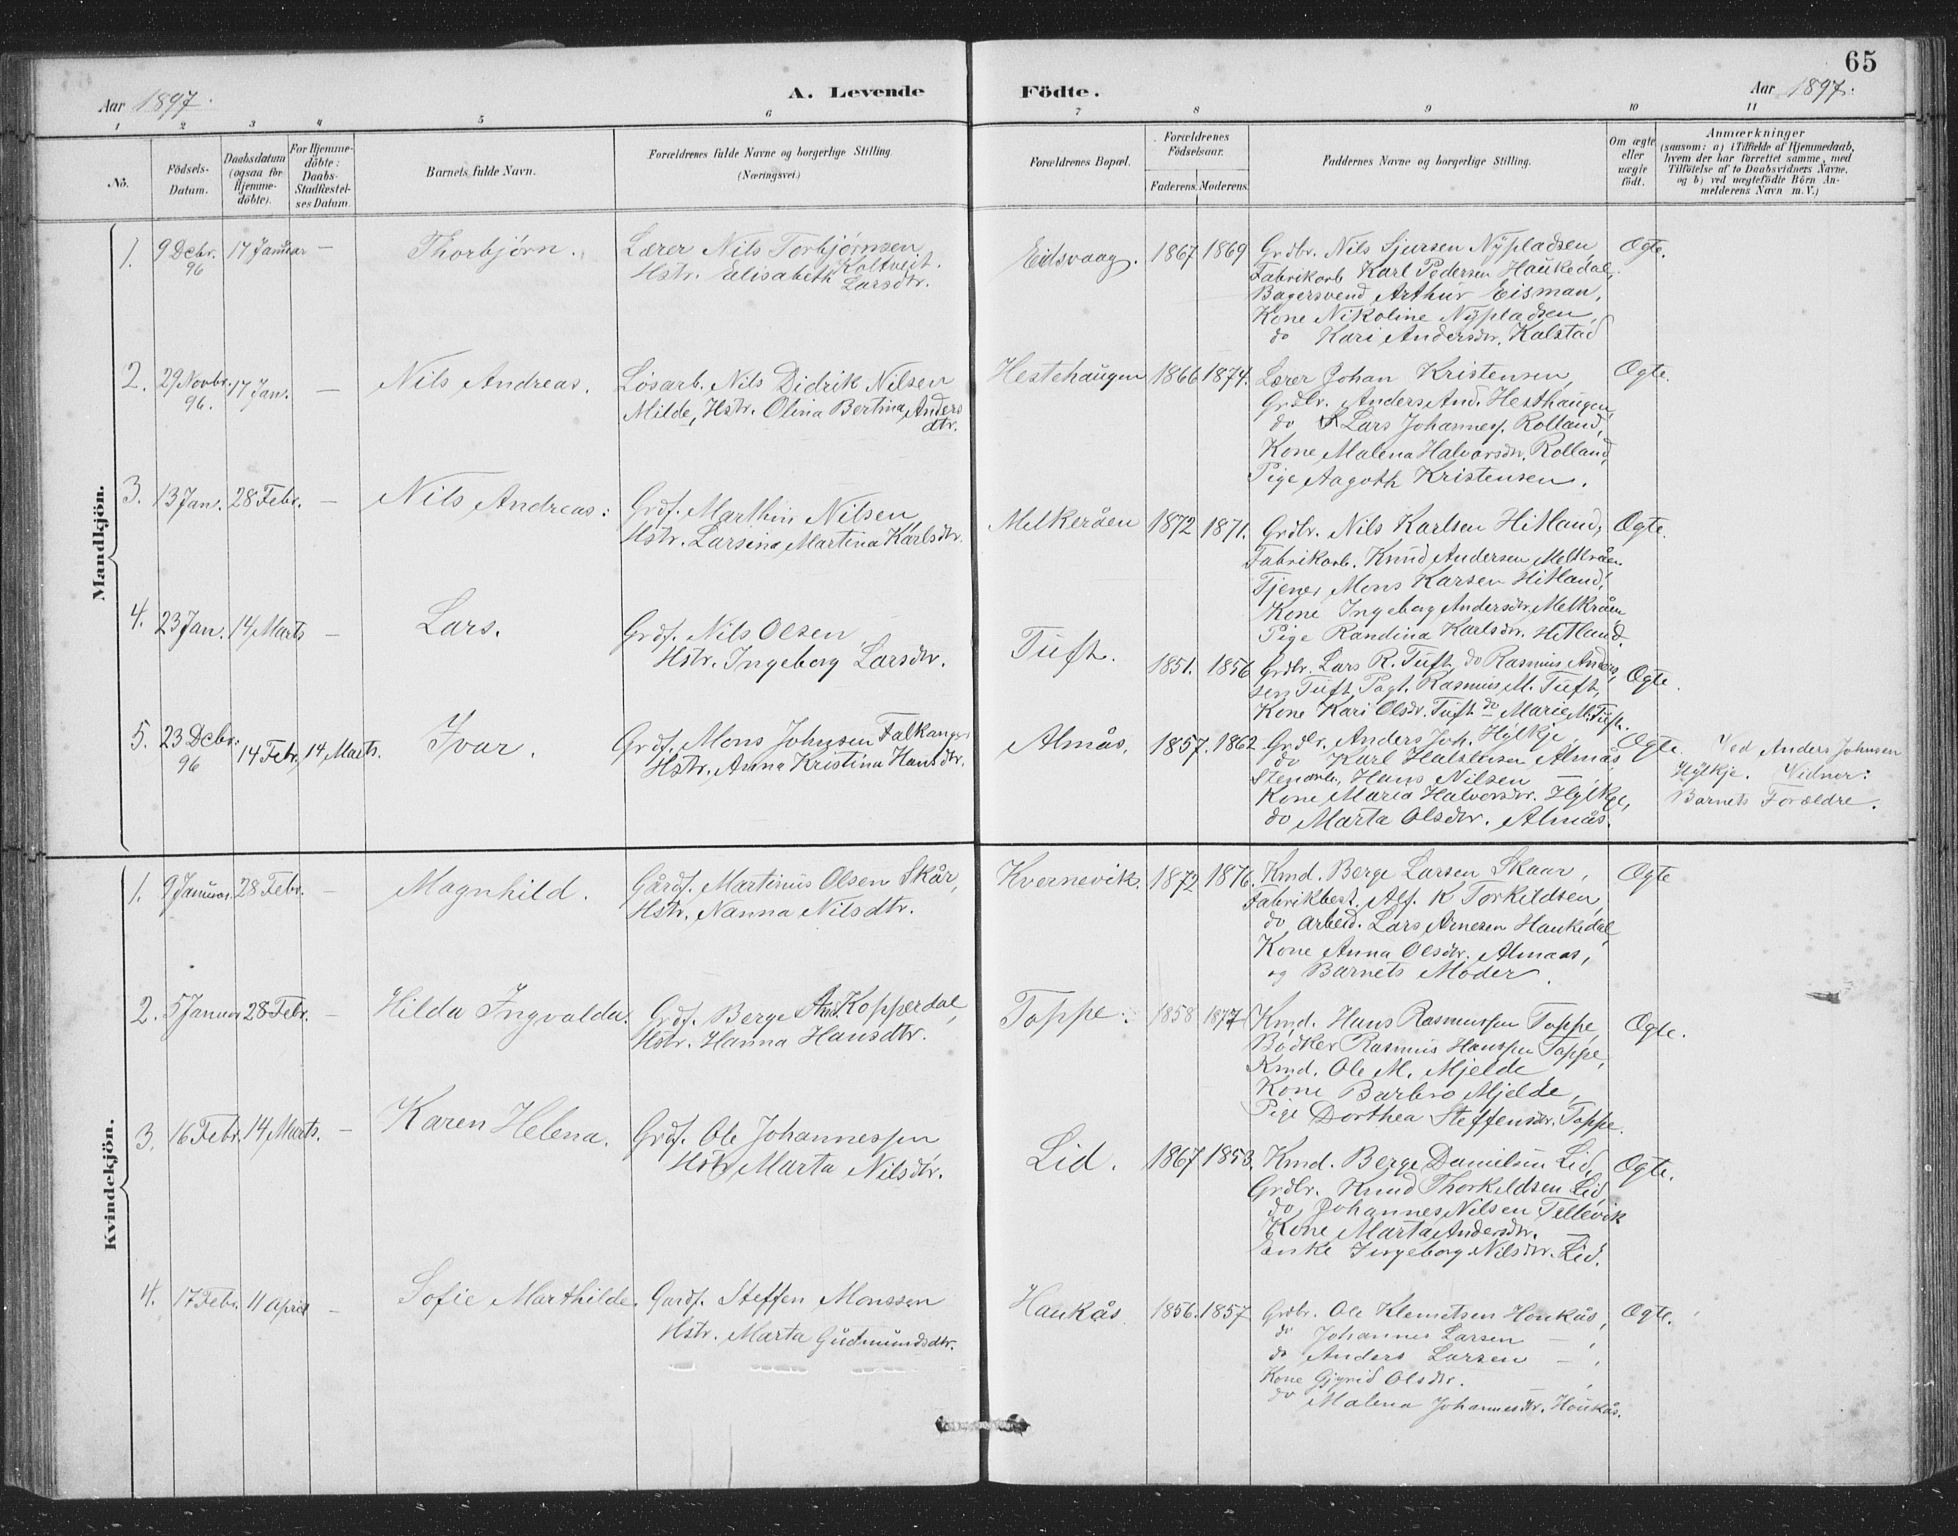 65
Aar 1897.
A. Levende Födte.
Aar 1897.
1 2 3 4 5 6 7 8 9 10 11
No.
Födsels-
Datum.
Daabsdatum
(ogsaa for
Hjemme-
döbte).
For Hjemme-
döbte:
Daabs-
Stadfæstel-
ses Datum.
Barnets fulde Navn.
Forældrenes fulde Navne og borgerlige Stilling.
(Næringsvei.)
Forældrenes Bopæl.
Forældrenes
Födselsaar.
Faderens. Moderens.
Faddernes Navne og borgerlige Stilling.
Om ægte
eller
uægte
födt.
Anmærkninger
(saasom: a) i Tilfælde af Hjemmedaab,
hvem der har forrettet samme, med
Tilföielse af to Daabsvidners Navne,
og b) ved uægtefödte Börn An-
melderens Navn m. V.)
Mandkjön.
1. 9 Debr. 96 17 Januar — Thorbjörn.
Lærer Nils Torbjørnsen Koltveit.
Hstr. Elisabeth Larsdtr.
Eidsvaag. 1867 1869
Grdbr. Nils Sjursen Nÿpladsen, Ogte.
Fabrikarb Karl Pedersen Haukedal,
Bagersvend Arthur Eisman,
Kone Nikoline Nÿpladsen,
do Kari Andersdtr. Kalstad
2. 29 Novbr. 96. 17 Jan. — Nils Andreas.
Løsarb. Nils Didrik Nilsen
Milde, Hstr. Olina Bertina Anders
dtr.
Hestehaugen 1866 1874.
Lærer Johan Kristensen, Ogte.
Grdbr. Anders And. Hesthaugen
do Lars Johannes. Rolland,
Kone Malena Halvorsdtr. Rolland,
Pige Aagoth Kristensen.
3. 13 Jan. 28 Febr. — Nils Andreas.
Grdf. Marthin Nilsen
Hstr. Larsina Martina Karlsdtr.
Melkeråen 1872 1871.
Grdbr. Nils Karlsen Hitland, Ogte.
Fabrikarb. Knud Andersen Melkråen
Tjener Mons Karsen Hitland,
Kone Ingeborg Andersdtr. Melkråen
Pige Randina Karlsdtr. Hitland.
4. 23 Jan. 14 Marts — Lars.
Grdf. Nils Olsen
Hstr. Ingeborg Larsdtr.
Tuft. 1851. 1856
Grdbr. Lars R. Tuft, do Rasmus Anders Ogte.
sen Tuft, Pagt. Rasmus M. Tuft,
Kone Kari Olsdtr. Tuft do Marie M. Tuft.
5. 23 Debr. 96 14 Febr. 14 Marts. Ivar.
Grdf. Mons Johnsen Falkanger
Hstr. Anna Kristina Hansdtr.
Almås. 1857. 1862
Grdbr. Anders Joh. Hylkje, Ogte. Ved Anders Johnsen
do Karl Halstensen Almås Hylkje. Vidner:
Stenarb. Hans Nilsen — Barnets Forældre.
Kone Maria Halvorsdtr. Hylkje,
do Marta Olsdtr. Almås.
Kvindekjön.
1. 9 Januar 28 Febr. — Magnhild.
Gårdf. Martinus Olsen Skår,
Hstr. Nanna Nilsdtr.
Kvernevik. 1872 1876.
Kmd. Berge Larsen Skaar, Ogte
Fabrikbest. Alf. K Torkildsen,
do arbeid. Lars Arnesen Haukedal,
Kone Anna Olsdtr. Almaas,
og Barnets Moder.
2. 5 Januar 28 Febr. — Hilda Ingvalda.
Grdf. Berge And. Kopperdal,
Hstr. Hanna Hansdtr.
Toppe. 1858 1877
Kmd. Hans Rasmussen Toppe, Ogte.
Bødker Rasmus Hanssen Toppe,
Kmd. Ole M. Mjelde
Kone Barbro Mjelde,
Pige Dorthea Steffensdtr. Toppe.
3. 16 Febr. 14 Marts. — Karen Helena.
Grdf. Ole Johannessen
Hstr Marta Nilsdtr.
Lid. 1867 1853.
Kmd. Berge Danielsen Lid, Ogte.
Grdbr. Knud Thorkildsen Lid,
do Johannes Nilsen Tellevik
Kone Marta Andersdtr. —
Enke Ingeborg Nilsdtr. Lid.
4. 17 Febr. 11 April — Sofie Marthilde.
Gardf. Steffen Monssen
Hstr. Marta Gudmundsdtr.
Haukås. 1856. 1857
Grdbr. Ole Klemetsen Houkås, Ogte.
do Johannes Larsen —,
do Anders Larsen —,
Kone Gjyrid Olsdtr. —,
do Malena Johannesdtr. Houkås.